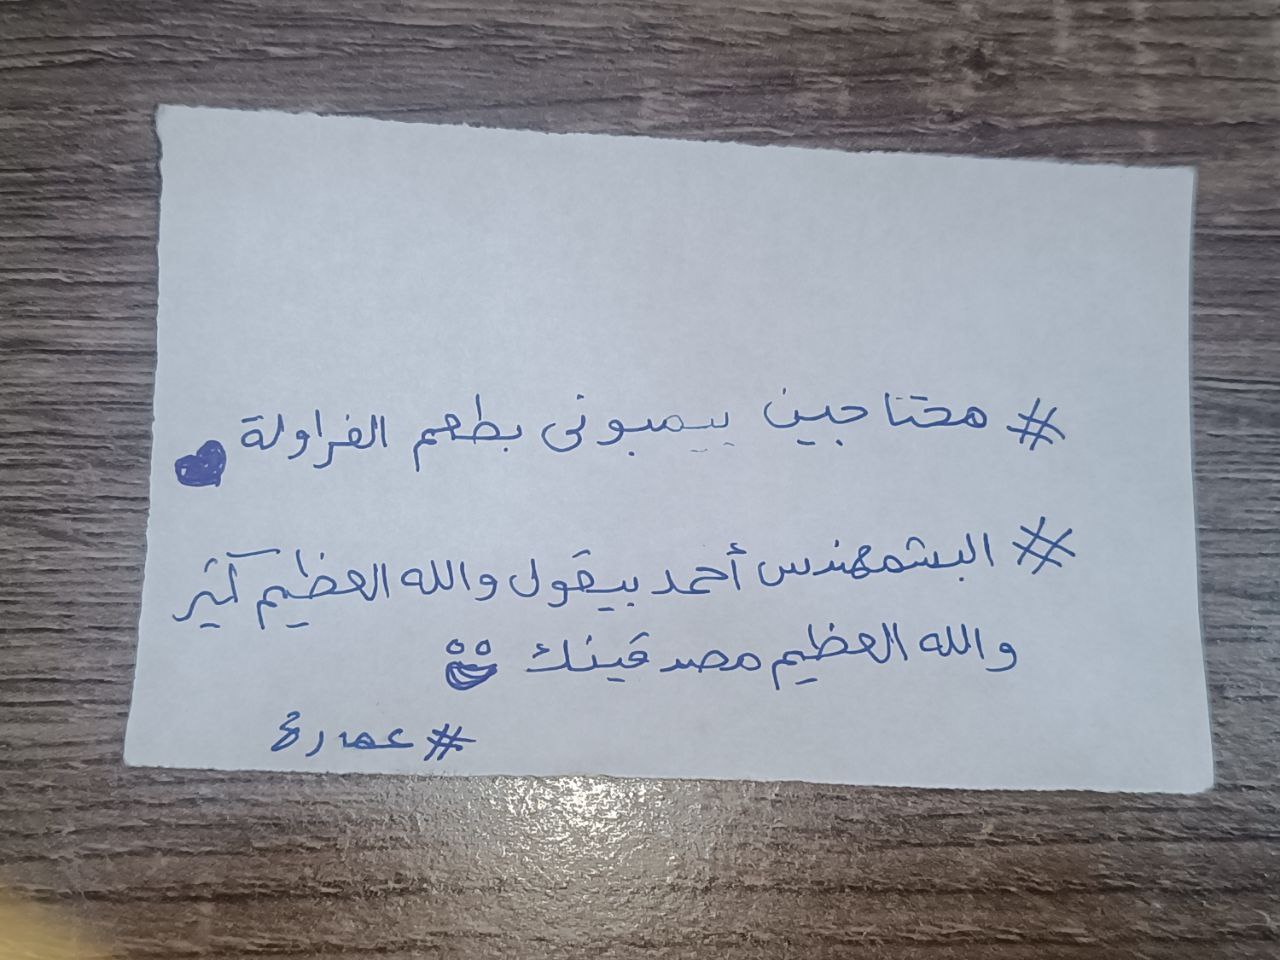 # محتاجين بيمبونى بطعم الفراولة
# البشمهندس أحمد بيقول والله العظيم كتير
والله العظيم مصدقينك
# عمارة